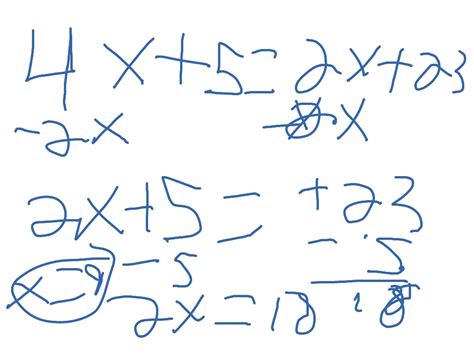 4x+5=2x+23
-2x -2x
2x+5= +23
-5 -5
x=9 2x=18 18